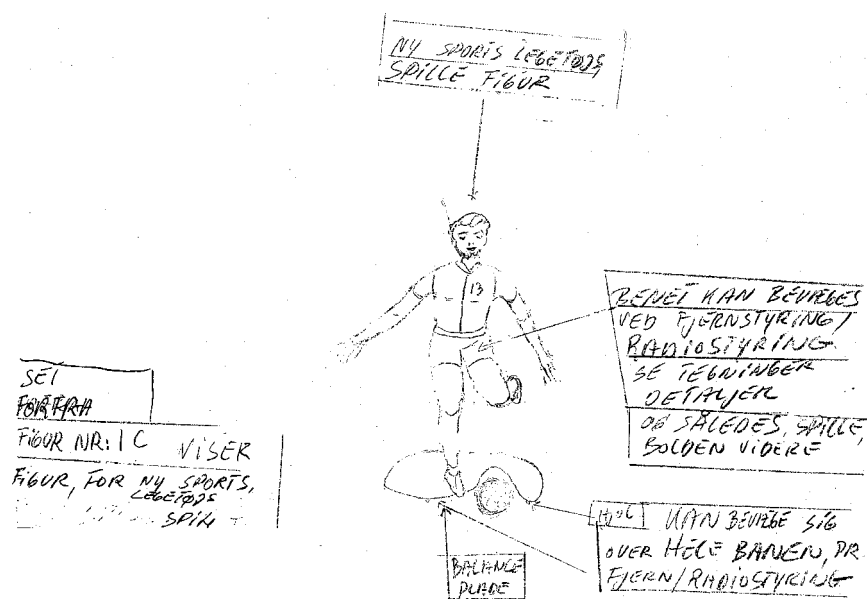 NY SPORTS LEGETØJS,
SPILLE FIGUR
13
BENET KAN BEVÆGES
VED FJERNSTYRING/
RADIOSTYRING
SE TEGNINGER
DETALJER
OG SÅLEDES, SPILLE,
BOLDEN VIDERE
SET
FORFRA
FIGUR NR: 1 C VISER
FIGUR, FOR NY SPORTS,
LEGETØJS
SPIL
HJUL KAN BEVÆGE SIG
OVER HELE BANEN, PR
FJERN/RADIOSTYRING
BALANCE
PLADE